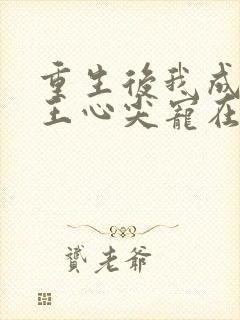 重生後我成
王心尖寵在
贇老爺